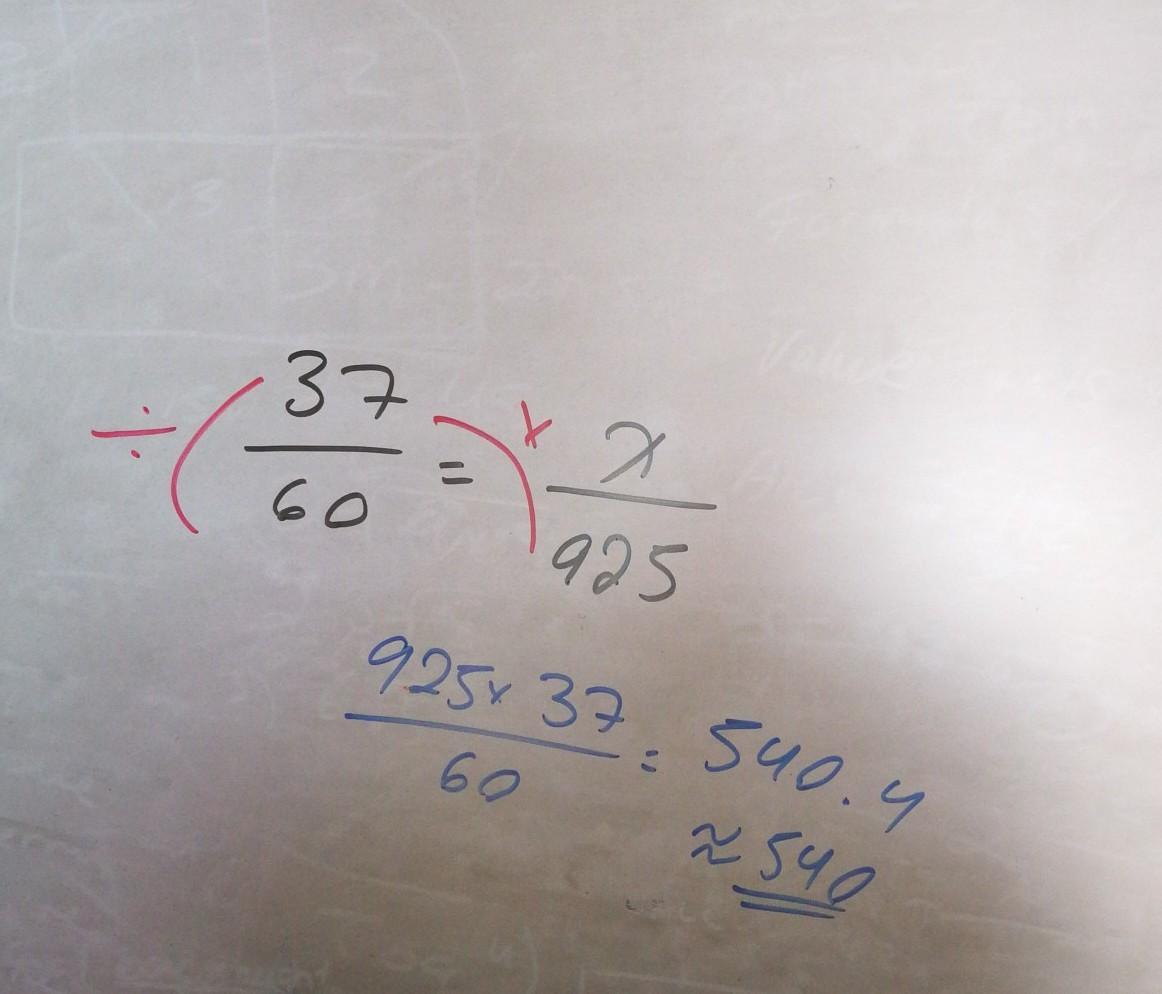 ÷ ( 37 / 60 = ) × x / 925
925 × 37 / 60 = 540.4
≈ 540